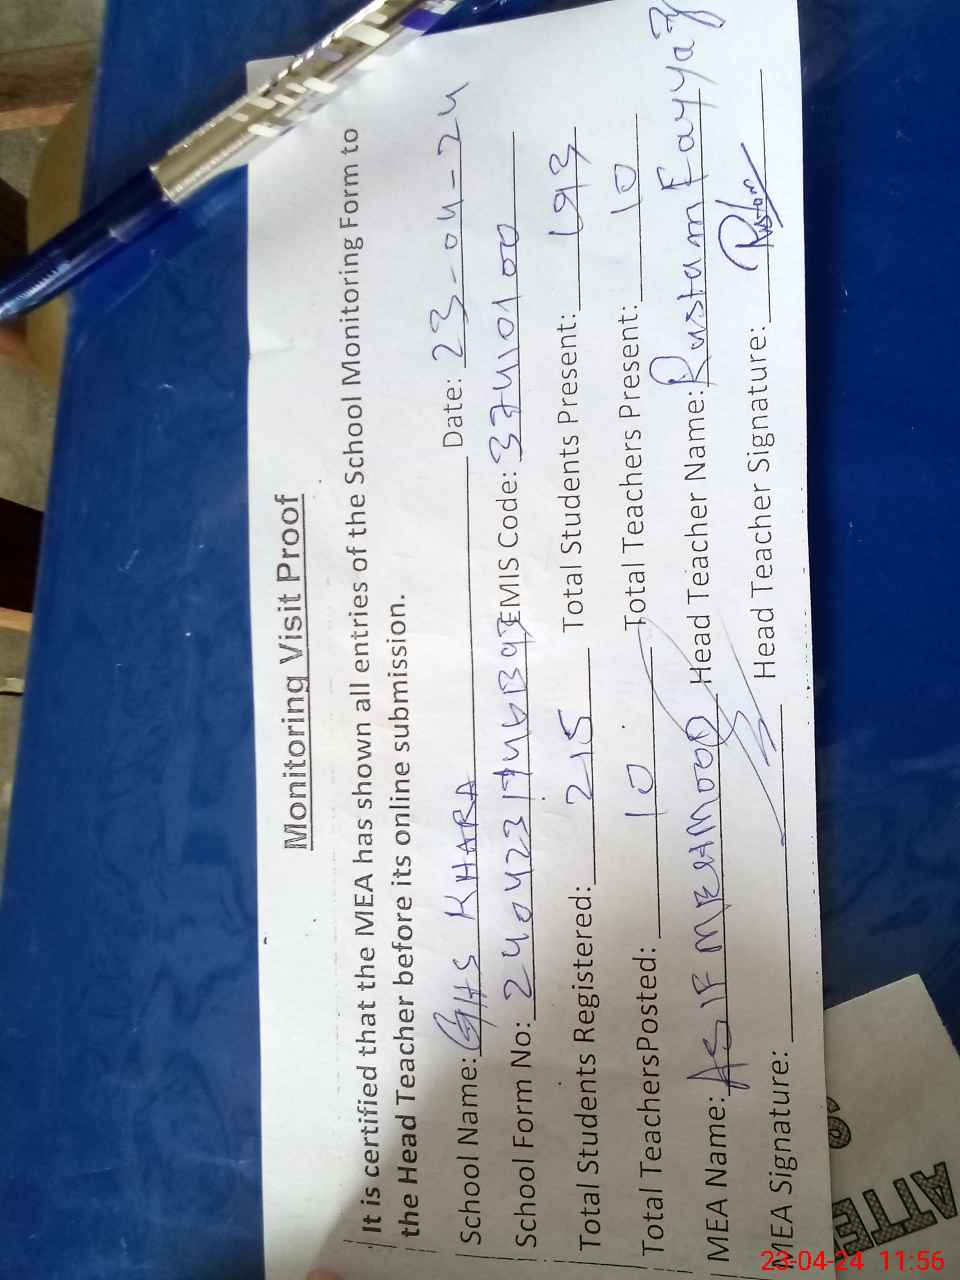 Monitoring Visit Proof
It is certified that the MEA has shown all entries of the School Monitoring Form to
the Head Teacher before its online submission.
School Name: GHS KHARA Date: 23-04-24
School Form No: EMIS Code: 37410100
Total Students Registered: 215 Total Students Present: 193
Total TeachersPosted: 10 Total Teachers Present: 10
MEA Name: ASIF MEHMOOD Head Teacher Name: Rustam Fayyaz
MEA Signature: Head Teacher Signature: Rustam
ATTE
23-04-24 11:56